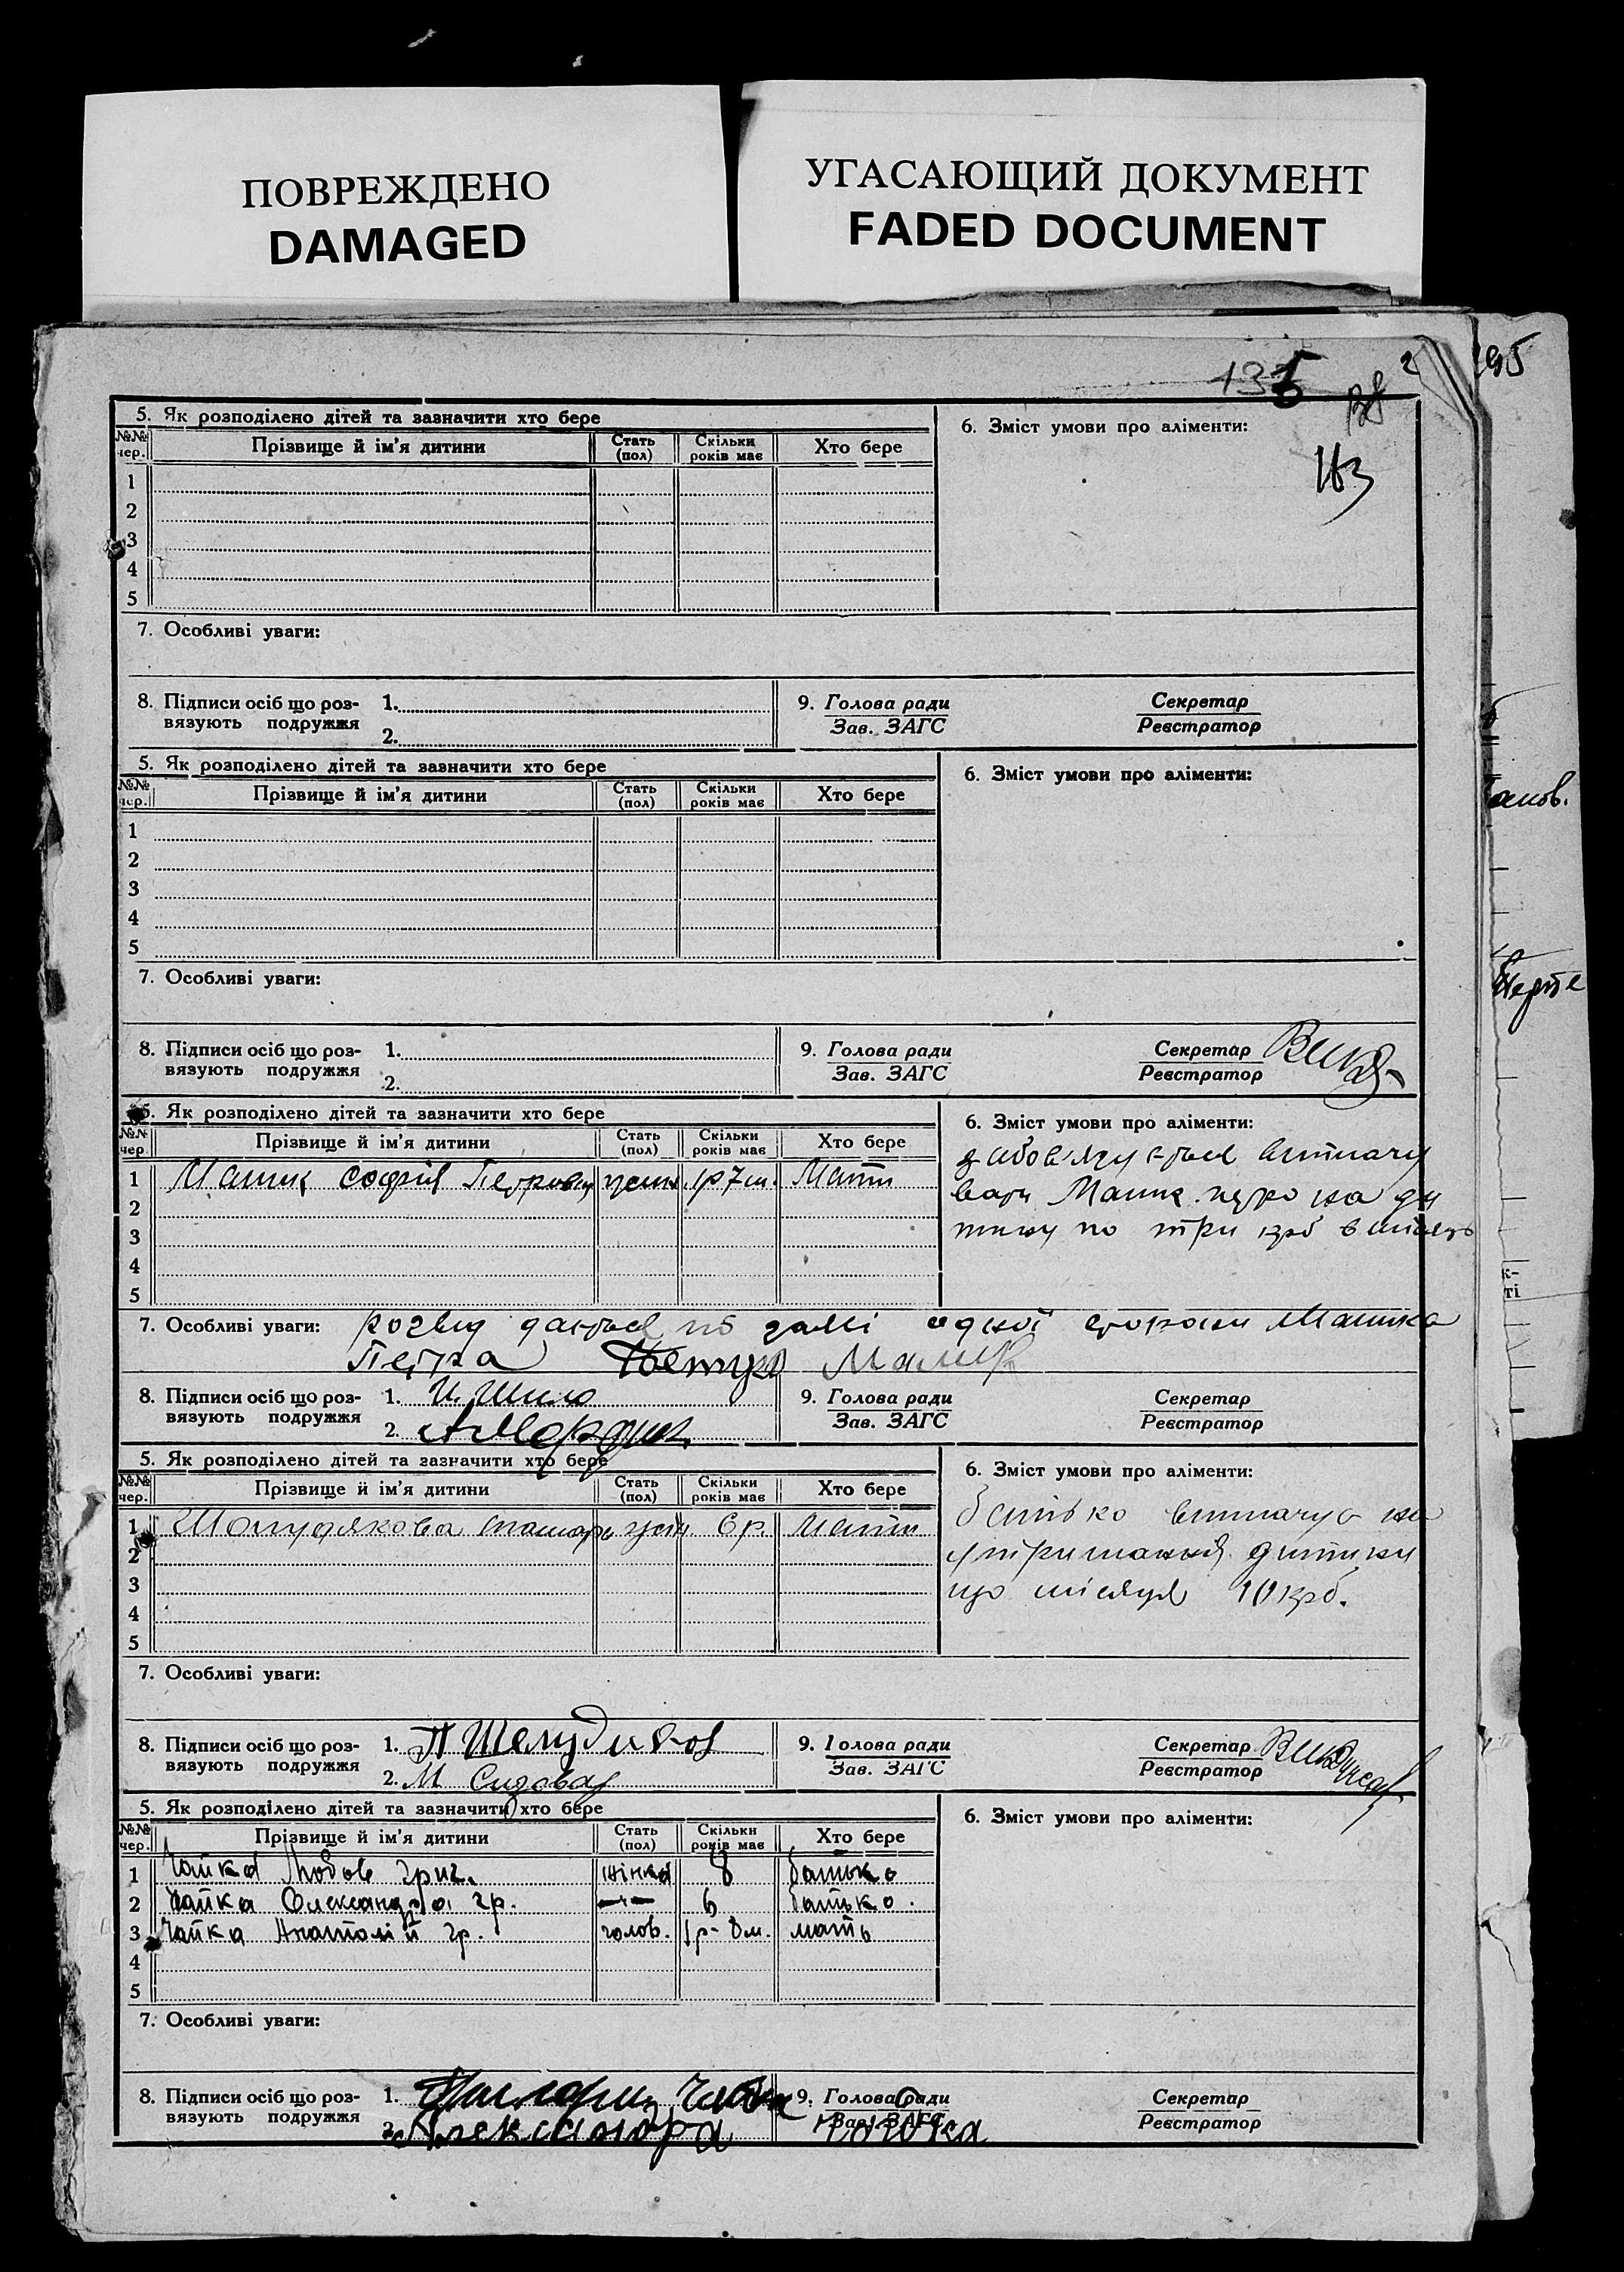 ПОВРЕЖДЕНО
DAMAGED
УГАСАЮЩИЙ ДОКУМЕНТ
FADED DOCUMENT
135
2
195
5. Як розподілено дітей та зазначити хто бере
6. Зміст умови про аліменти:
№№ чер. Прізвище й ім'я дитини Стать (пол) Скільки років має Хто бере
163
1
2
3
4
5
7. Особливі уваги:
8. Підписи осіб що роз-вязують подружжя 1. 2.
9. Голова ради Зав. ЗАГС Секретар Реєстратор
5. Як розподілено дітей та зазначити хто бере
6. Зміст умови про аліменти:
№№ чер. Прізвище й ім'я дитини Стать (пол) Скільки років має Хто бере
1
2
3
4
5
7. Особливі уваги:
8. Підписи осіб що роз-вязують подружжя 1. 2.
9. Голова ради Зав. ЗАГС Секретар Реєстратор
5. Як розподілено дітей та зазначити хто бере
6. Зміст умови про аліменти:
№№ чер. Прізвище й ім'я дитини Стать (пол) Скільки років має Хто бере
1 Софія Петровна 1р 7м. Мати
2
3
4
5
вати Петро на ди
тину по три крб в місяць
7. Особливі уваги: розвід дається по заяві одної сторони
Петра Петро
8. Підписи осіб що роз-вязують подружжя 1. 2.
9. Голова ради Зав. ЗАГС Секретар Реєстратор
5. Як розподілено дітей та зазначити хто бере
6. Зміст умови про аліменти:
№№ чер. Прізвище й ім'я дитини Стать (пол) Скільки років має Хто бере
1 6 р. мати
2
3
4
5
батько виплачує на
утримання дитини
що місяця 10 крб.
7. Особливі уваги:
8. Підписи осіб що роз-вязують подружжя 1. П Шелудяков 2. М
9. Голова ради Зав. ЗАГС Секретар Реєстратор
5. Як розподілено дітей та зазначити хто бере
6. Зміст умови про аліменти:
№№ чер. Прізвище й ім'я дитини Стать (пол) Скільки років має Хто бере
1 Чайка Любов Григ. жінка 8 батько
2 Чайка Олександра гр. —"— 6 батько.
3 Чайка Анатолій гр. чолов. 1р-8м. мать
4
5
7. Особливі уваги:
8. Підписи осіб що роз-вязують подружжя 1. Чайка 2. Александра
9. Голова ради Зав. ЗАГС Секретар Реєстратор